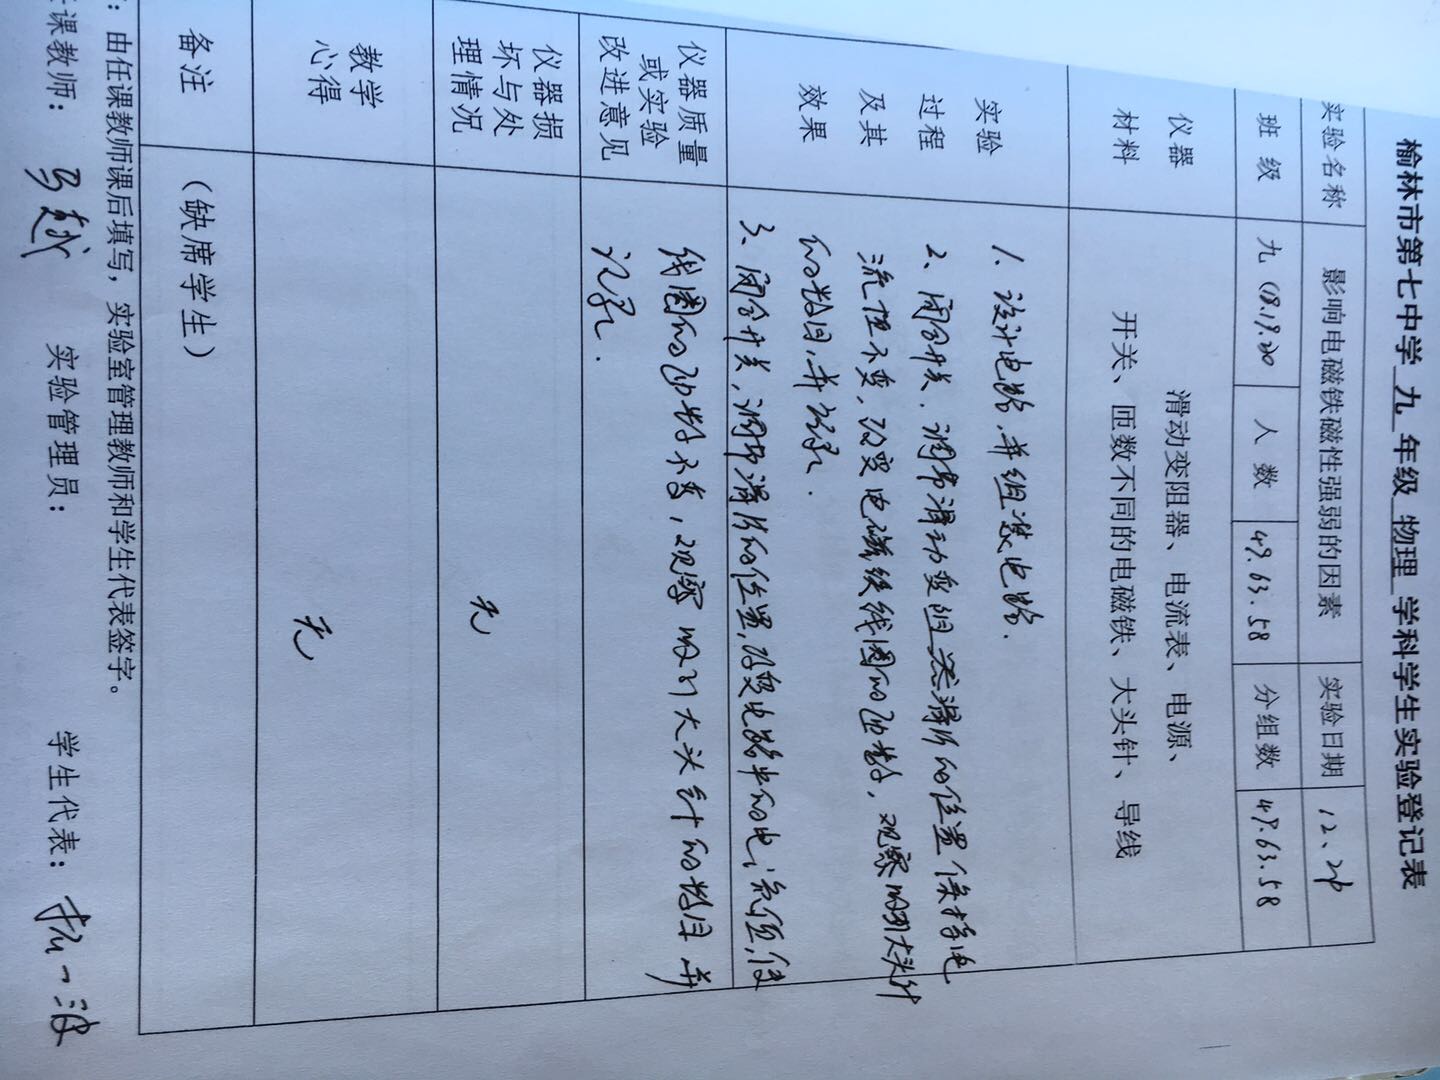 榆林市第七中学 九 年级 物理 学科学生实验登记表
实验名称 影响电磁铁磁性强弱的因素 实验日期
班 级 九(18.19.20 人 数 49.63.58 分组数 49.63.58
仪器
材料
滑动变阻器、电流表、电源、
开关、匝数不同的电磁铁、大头针、导线
实验
过程
及其
效果
1、设计电路,并组装电路.
2、闭合开关,调节滑动变阻器滑片的位置保持电
流值不变,改变电磁铁线圈的匝数,观察吸引大头针
的数目,并记录.
3、闭合开关,调节滑片的位置,改变电路中的电流值,使
线圈的匝数不变,观察吸引大头针的数目并
记录.
仪器质量
或实验
改进意见
仪器损
坏与处
理情况
无
教学
心得
无
备注 (缺席学生)
:由任课教师课后填写,实验室管理教师和学生代表签字。
课教师: 实验管理员: 学生代表: